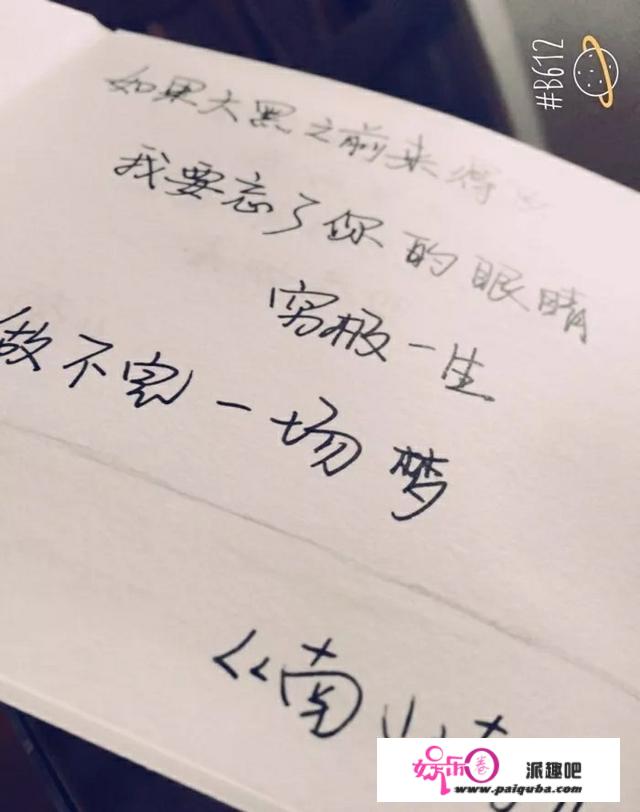 #B612
如果大黑之前来得
我要忘了你的眼睛
穷极一生
做不完一场梦
《南山
娱乐圈 派趣吧
www.paiquba.com